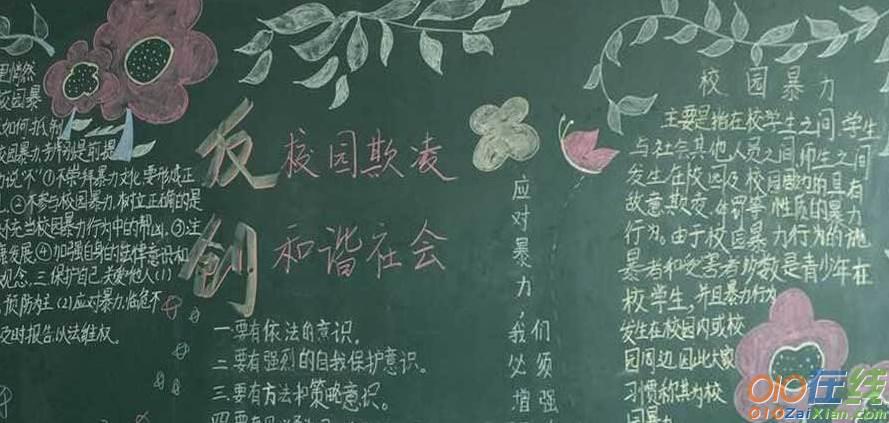 反校园欺凌
创和谐社会
校园暴
如何
校园暴力
说"不"①不崇拜暴力文化要形成正
②不参与校园暴力,树立正确的是
当校园暴力行为中的帮凶。③注
发展④加强自身的法律意识和
观念,三保护自己,关爱他人(1)
预防为主(2)应对暴力,临危不
及时报告,以法维权。
一要有依法的意识。
二要有强烈的自我保护意识。
三要有方法和策略意识。
四要有
应对暴力,我们必须增强
校园暴力
主要是指在校学生之间,学生
与社会其他人员之间,师生之间
发生在校园及校园周边的具有
故意欺凌、罚等性质的暴力
行为。由于校园暴力行为的施
暴者和受害者多数是青少年在
校学生,并且暴力行为
发生在校园内或校
园周边,因此大家
习惯称其为校
园暴
010在线
010ZaiXian.com